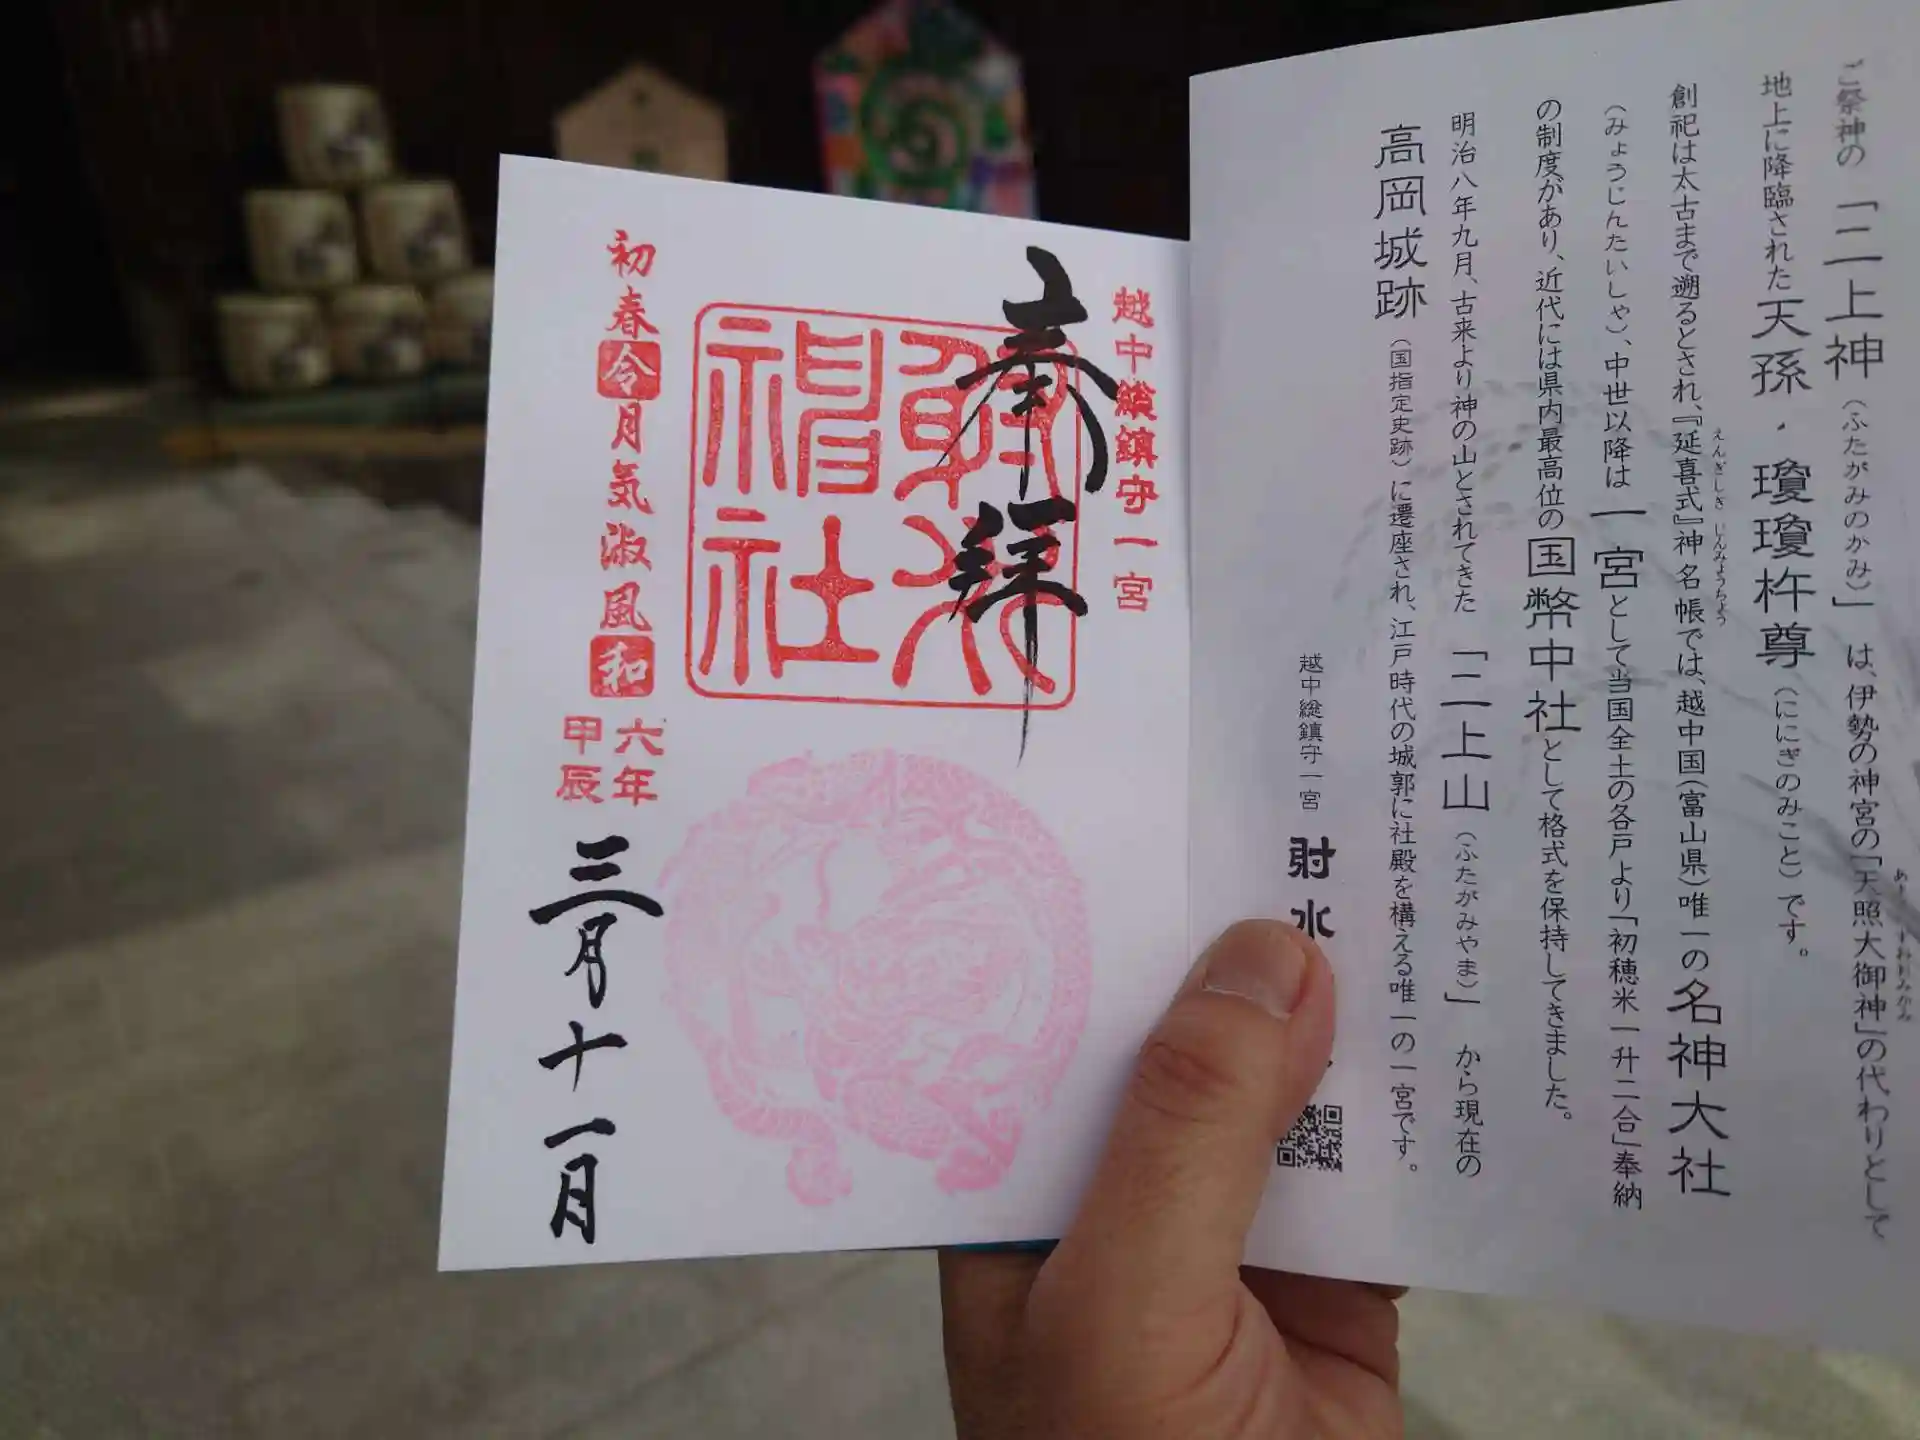 ご祭神の「二上神（ふたがみのかみ）」は、伊勢の神宮の「天照大御神」の代わりとして
地上に降臨された天孫・瓊瓊杵尊（ににぎのみこと）です。
創祀は太古まで遡るとされ、『延喜式』神名帳では、越中国（富山県）唯一の名神大社
えんぎしき じんみょうちょう
（みょうじんたいしゃ）、中世以降は一宮として当国全土の各戸より「初穂米一升二合」奉納
の制度があり、近代には県内最高位の国幣中社として格式を保持してきました。
明治八年九月、古来より神の山とされてきた「二上山（ふたがみやま）」から現在の
高岡城跡（国指定史跡）に遷座され、江戸時代の城郭に社殿を構える唯一の一宮です。
越中総鎮守一宮 射水
越中総鎮守一宮
奉拝
射水神社
初春令月気淑風和
六年
甲辰
三月十一日